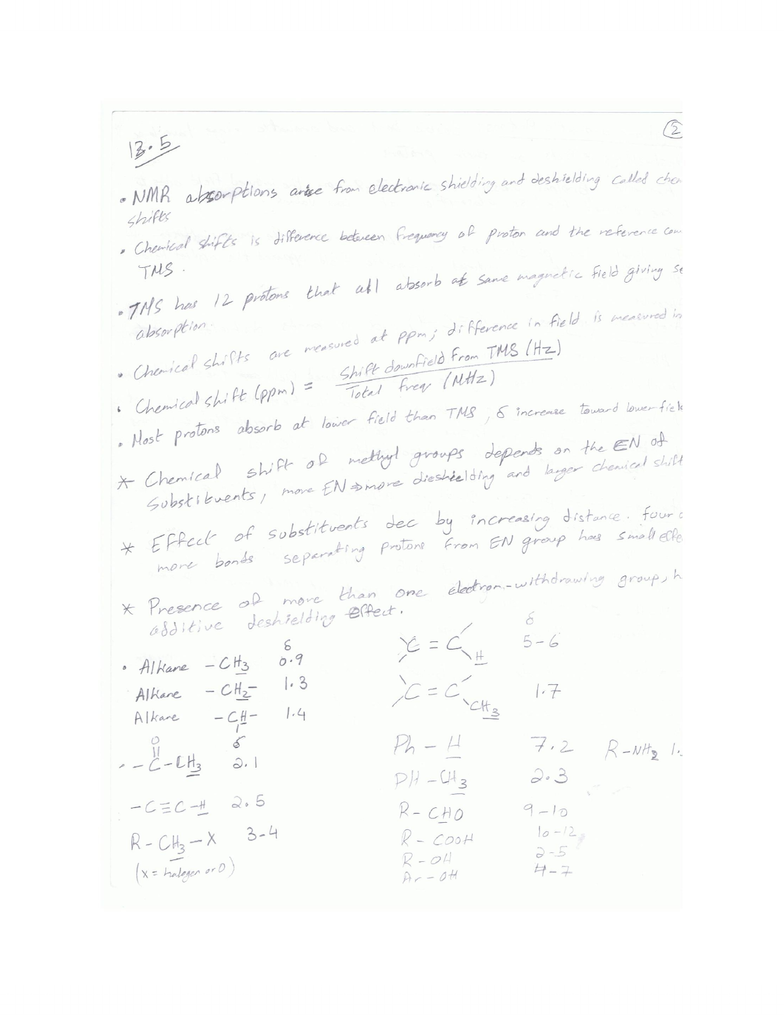 2
13.5
• NMR absorptions arise from electronic shielding and deshielding called che
shifts
• Chemical shifts is difference between frequency of proton and the reference com
TMS.
• TMS has 12 protons that all absorb at same magnetic field giving
absorption.
• Chemical shifts are measured at ppm; difference in field is measured in
• Chemical shift (ppm) = Shift downfield from TMS (Hz)
Total freq. (MHz)
• Most protons absorb at lower field than TMS, δ increase toward lower field
* Chemical shift of methyl groups depends on the EN of
substituents, more EN ⇒ more dieshielding and larger chemical shift
* Effect of substituents dec by increasing distance. four o
more bonds separating protons from EN group has small effe
* Presence of more than one electron-withdrawing group, h
additive deshielding effect.
δ
• Alkane -CH3 0.9
Alkane -CH2- 1.3
Alkane -CH- 1.4
O δ
-C-CH3 2.1
-C≡C-H 2.5
R-CH3-X 3-4
(X = halogen or O)
δ
C=C H 5-6
C=C CH3 1.7
Ph-H 7.2 R-NH2 1.
PH-CH3 2.3
R-CHO 9-10
R-COOH 10-12
R-OH 2-5
Ar-OH 4-7